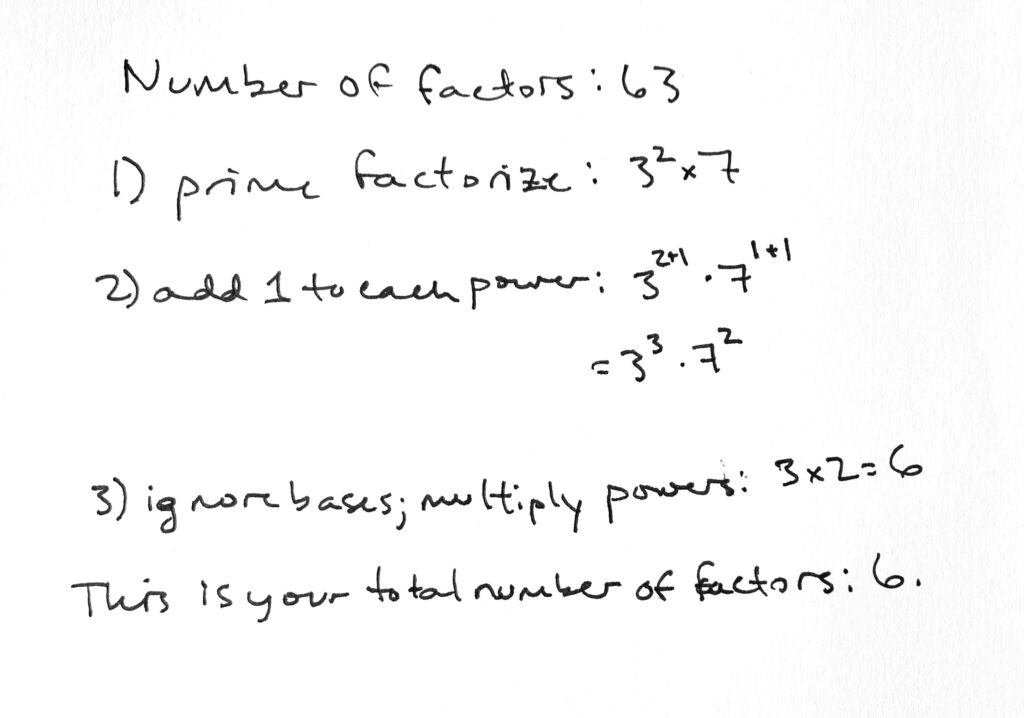 Number of factors: 63
1) prime factorize: 3² × 7
2) add 1 to each power: 3²⁺¹ · 7¹⁺¹
= 3³ · 7²
3) ignore bases; multiply powers: 3 × 2 = 6
This is your total number of factors: 6.